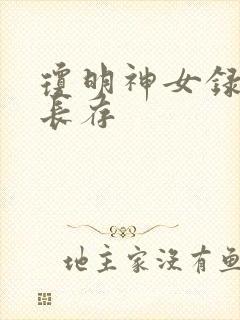 瓊明神女録
長存
地主家没有鱼